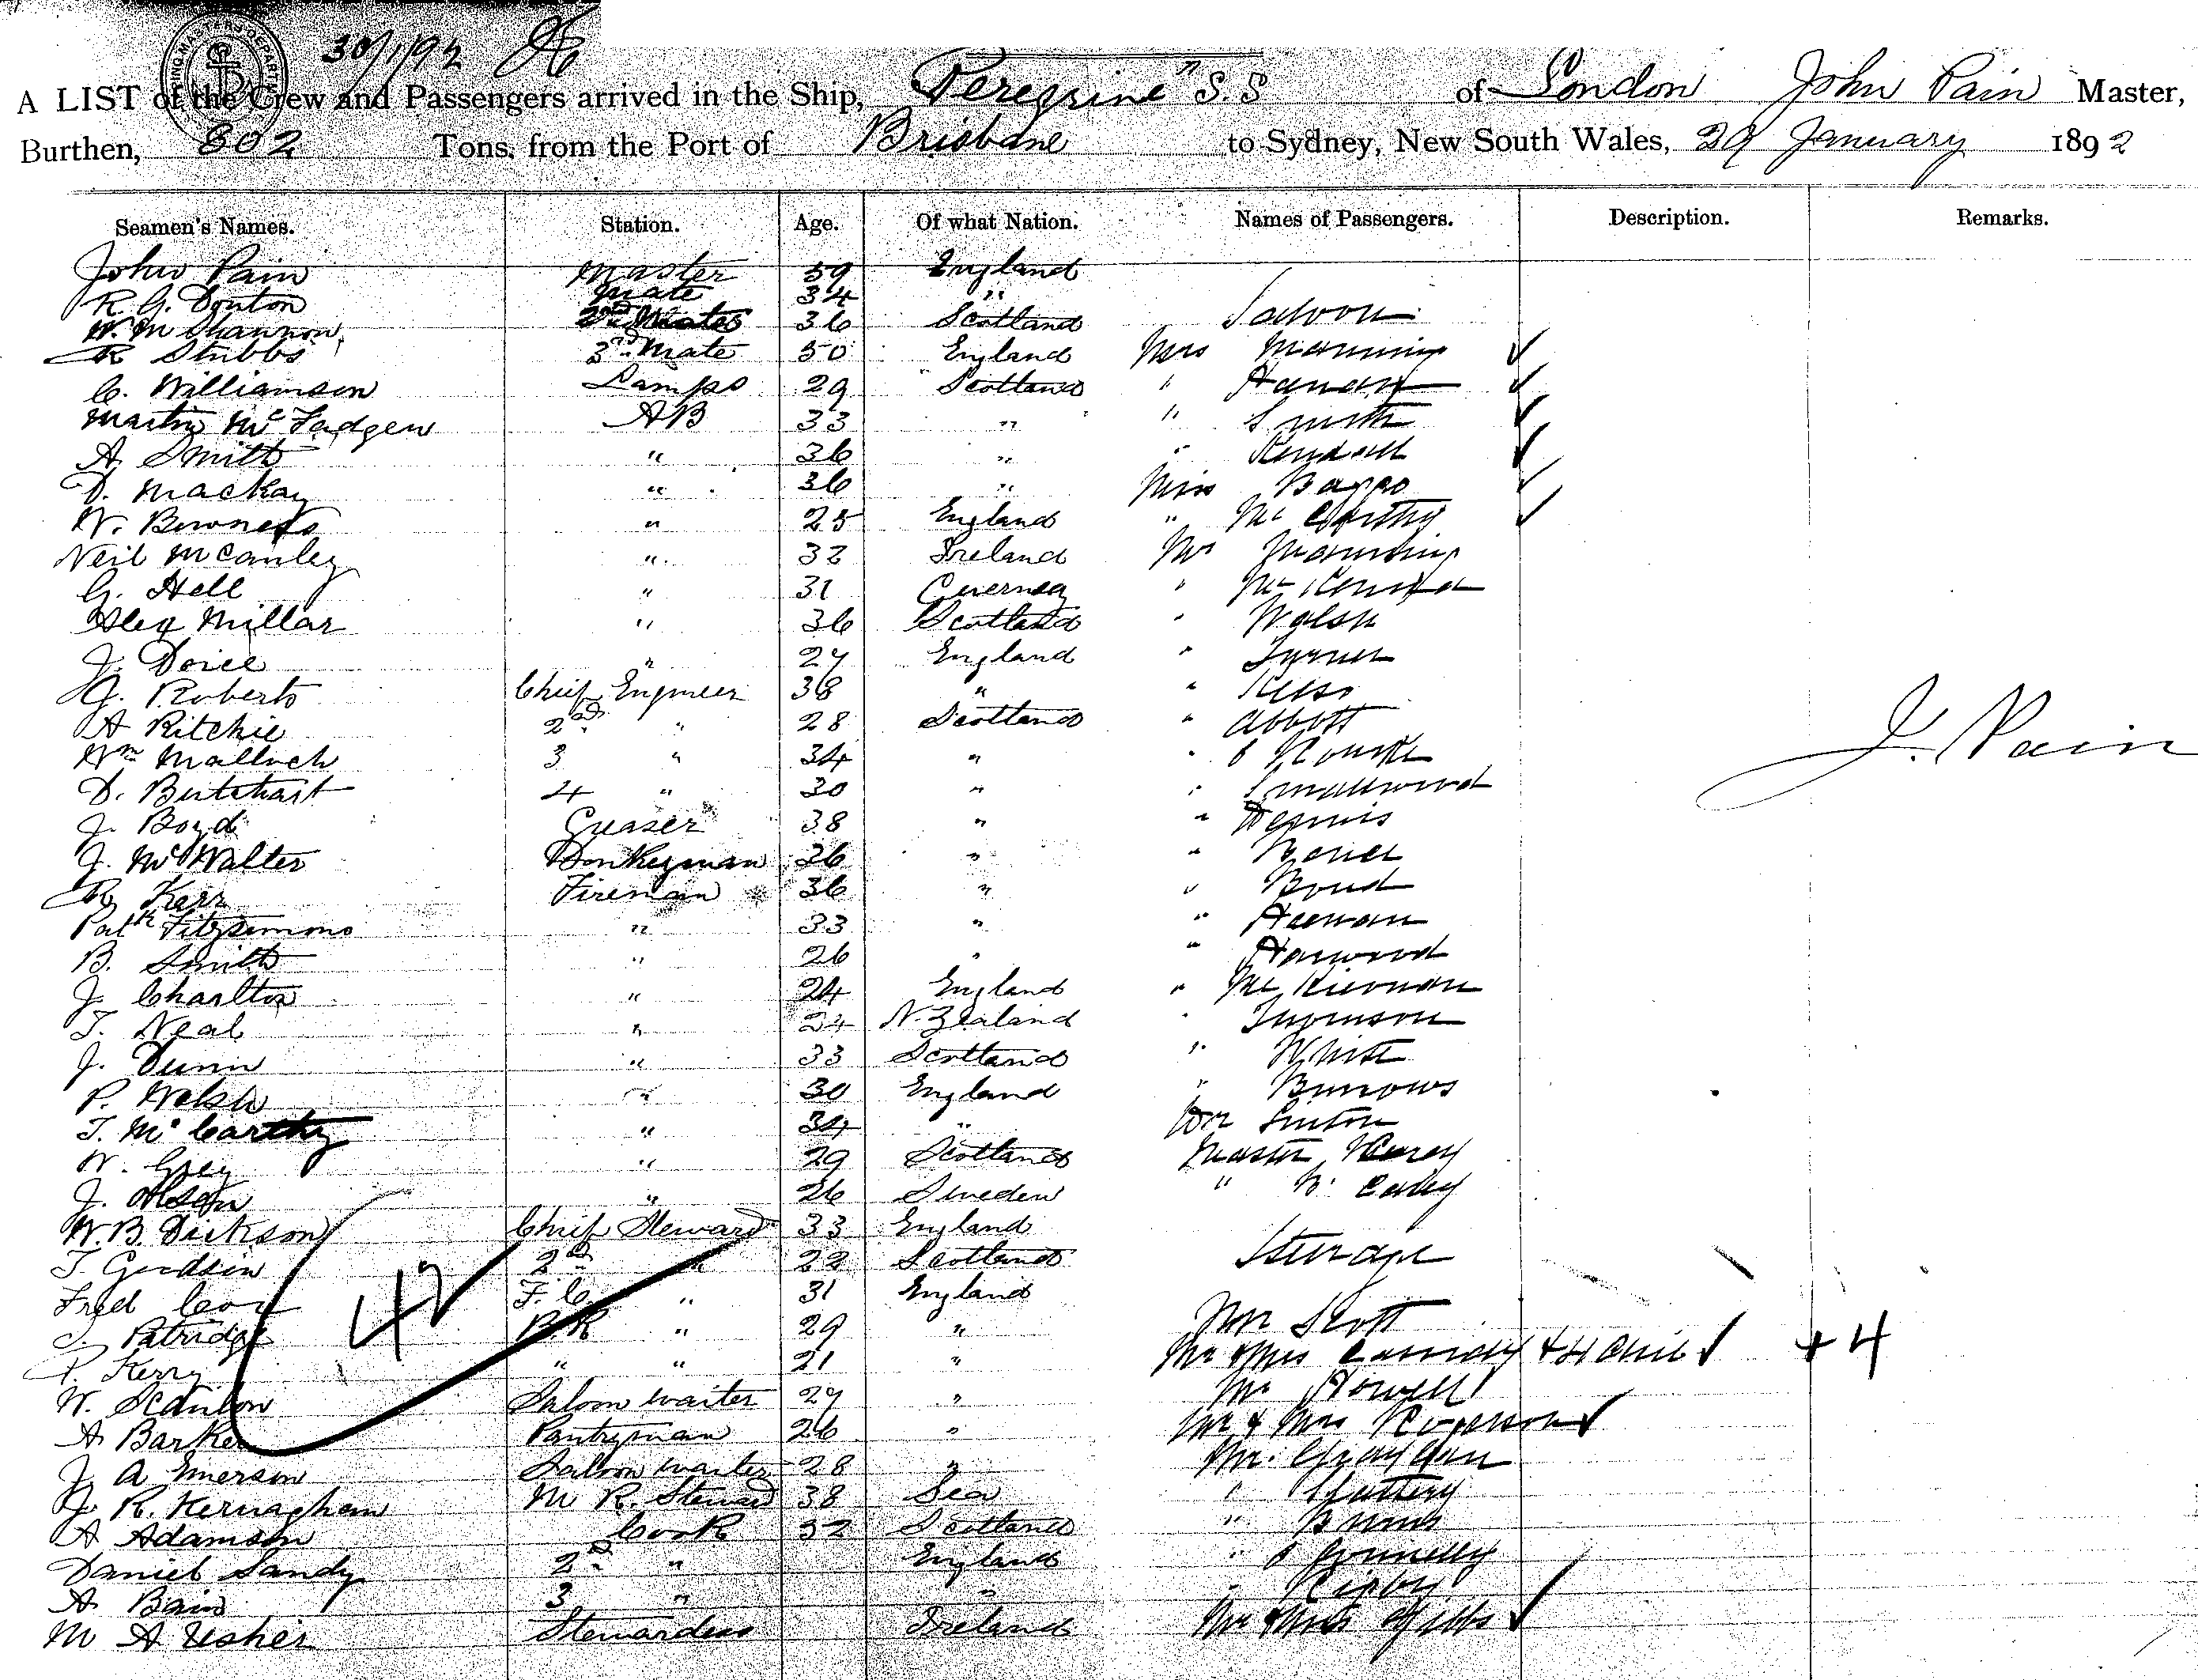 30/1/92
A LIST of the Crew and Passengers arrived in the Ship, "Peregrine" S.S of London John Pain Master,
Burthen, 802 Tons, from the Port of Brisbane to Sydney, New South Wales, 29 January 1892
Seamen's Names. Station. Age. Of what Nation. Names of Passengers. Description. Remarks.
John Pain Master 59 England
R. G. Douton Mate 34 "
W. McShannon 2nd Mate 36 Scotland Saloon
R Stubbs 3rd Mate 50 England Mrs Manning
C. Williamson Lamps 29 Scotland "
Martin McFadgen AB 33 " " Smith
A Smith " 36 " " Kendall
D. Mackay " 36 " Miss Baggs
W. Bowness " 25 England " McCarthy
Neil McCauley " 32 Ireland Mr Manning
G. Hell " 31 Guernsey "
Alex Millar " 36 Scotland " Walsh
J. Doice " 27 England " Turner
J. Roberts Chief Engineer 38 " "
A Ritchie 2nd " 28 Scotland " Abbott
Wm Malloch 3 " 34 " " O Rourke
D. Butchart 4 " 30 " " Smallwood
J. Boyd Greaser 38 " " Dennis
J. McWalter Donkeyman 26 " "
R Kerr Fireman 36 " " Bond
Patk Fitzsimons " 33 " " Heenan
B. Smith " 26 " " Harwood
J. Charlton " 24 England " McKiernan
T. Neal " 24 N. Zealand "
J. Dunn " 33 Scotland " White
P. Welsh " 30 England " Burrows
T. McCarthy " 34 " Dr Linton
W. Grey " 29 Scotland Master Carey
J. Olson " 26 Sweden " Carey
W. B. Dickson Chief Steward 33 England
T Goodsin 2nd " 22 Scotland Steerage
Fred Cox F. C. " 31 England
42
J. Patridge B.R " 29 " Mr Scott
P. Kerry " " 21 " Mr & Mrs Cassidy + 4 Chil + 4
W. Scanlon Saloon Waiter 27 " Mr Howell
A Barker Pantryman 26 " Mr & Mrs Rogerson
J A Emerson Saloon Waiter 28 " Mr.
J. R. Kernaghan M R. Steward 38 Sea " Slattery
A Adamson Cook 32 Scotland " Burns
Daniel Sandy 2nd " England " O Connelly
A Bain 3 " " " Rigby
M A Usher Stewardess Ireland Mr & Mrs Gibbs
J. Pain